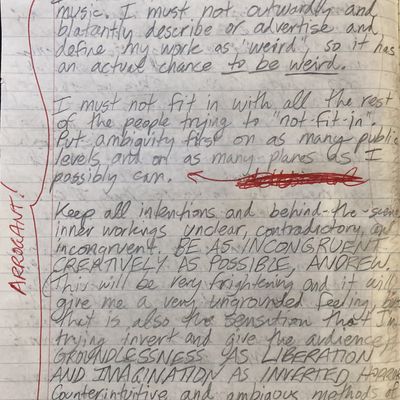 music. I must not outwardly and
blatantly describe or advertise and
define my work as "weird", so it has
an actual chance to be weird.
I must not fit in with all the rest
of the people trying to "not-fit-in".
Put ambiguity first on as many public
levels and on as many planes as I
possibly can.
Keep all intentions and behind-the-scene
inner workings unclear, contradictory, and
incongruent. BE AS INCONGRUENT
CREATIVELY AS POSSIBLE, ANDREW.
(This will be very frightening and it will
give me a very ungrounded feeling, but
that is also the sensation that I'm
trying invert and give the audience.)
GROUNDLESSNESS AS LIBERATION
AND IMAGINATION AS INVERTED HORROR
Counterintuitive and ambigous methods of
ARROGANT!